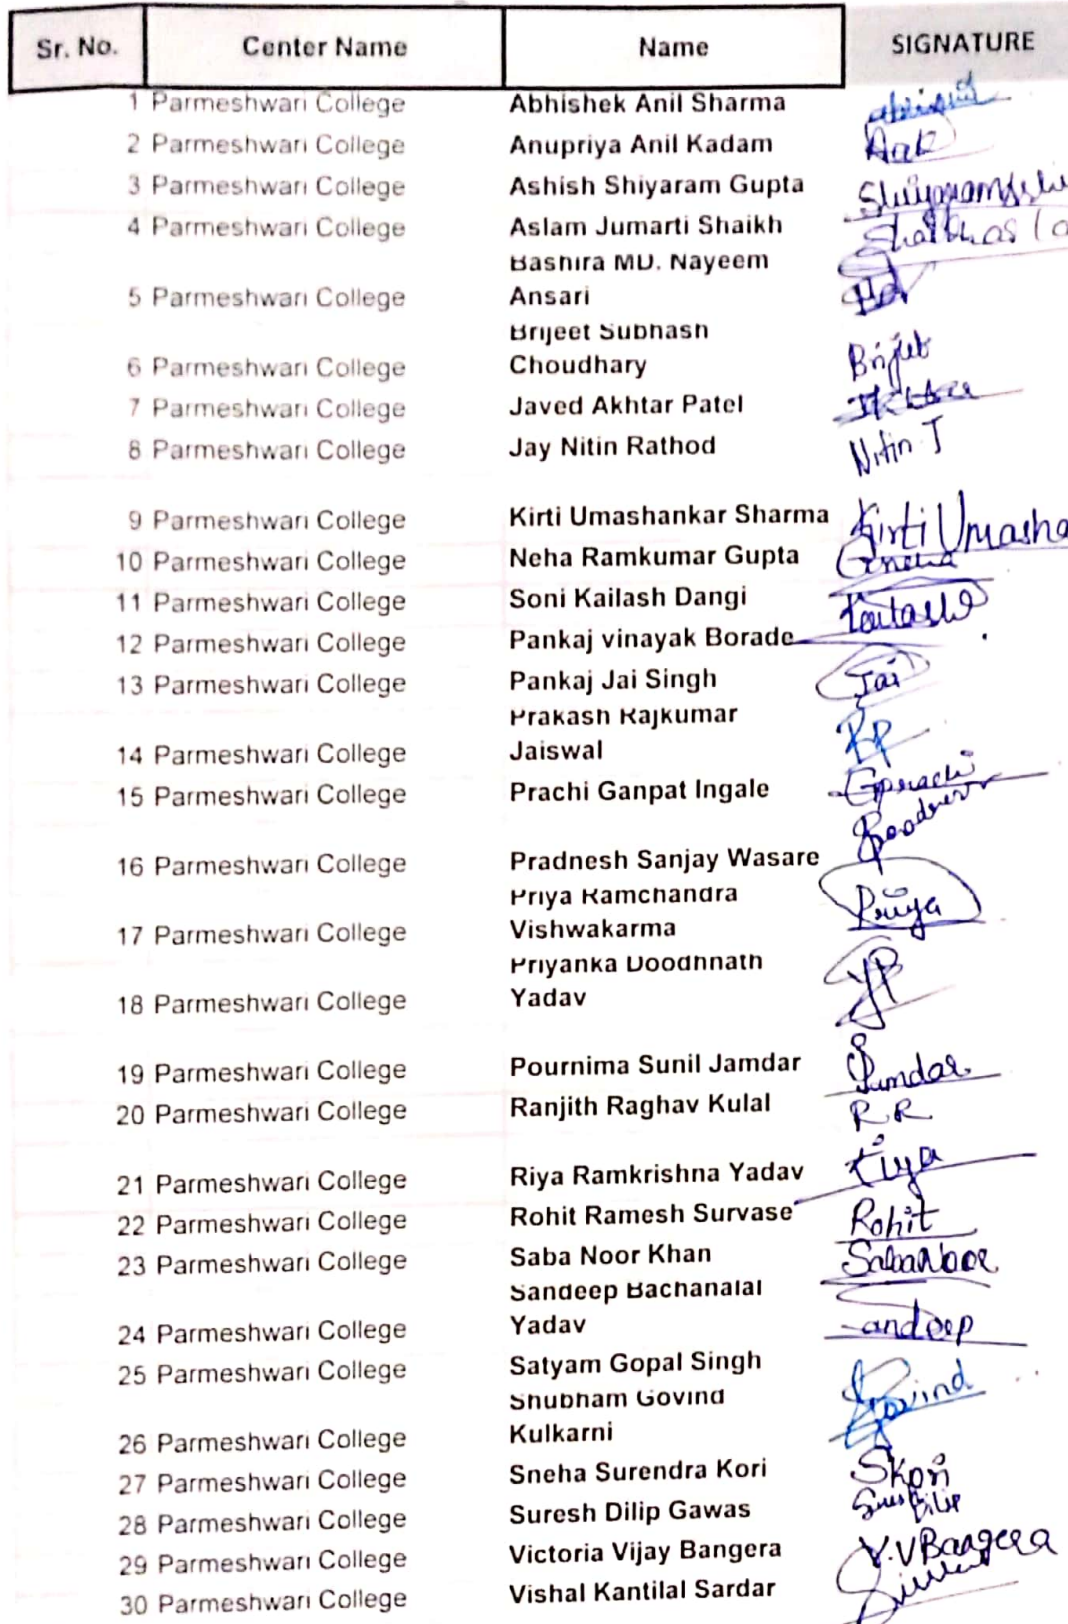 Sr. No. Center Name Name SIGNATURE
1 Parmeshwari College Abhishek Anil Sharma
2 Parmeshwari College Anupriya Anil Kadam
3 Parmeshwari College Ashish Shiyaram Gupta
4 Parmeshwari College Aslam Jumarti Shaikh
Bashira MD. Nayeem
5 Parmeshwari College Ansari
Brijeet Subhash
6 Parmeshwari College Choudhary Brijet
7 Parmeshwari College Javed Akhtar Patel
8 Parmeshwari College Jay Nitin Rathod Nitin J
9 Parmeshwari College Kirti Umashankar Sharma Kirti Umasha
10 Parmeshwari College Neha Ramkumar Gupta
11 Parmeshwari College Soni Kailash Dangi
12 Parmeshwari College Pankaj vinayak Borade
13 Parmeshwari College Pankaj Jai Singh Jai
Prakash Rajkumar
14 Parmeshwari College Jaiswal
15 Parmeshwari College Prachi Ganpat Ingale
16 Parmeshwari College Pradnesh Sanjay Wasare
Priya Ramchandra
17 Parmeshwari College Vishwakarma Priya
Priyanka Doodhnath
18 Parmeshwari College Yadav
19 Parmeshwari College Pournima Sunil Jamdar
20 Parmeshwari College Ranjith Raghav Kulal R R
21 Parmeshwari College Riya Ramkrishna Yadav Riya
22 Parmeshwari College Rohit Ramesh Survase Rohit
23 Parmeshwari College Saba Noor Khan SabaNoor
Sandeep Bachanalal
24 Parmeshwari College Yadav Sandeep
25 Parmeshwari College Satyam Gopal Singh
Shubham Govind
26 Parmeshwari College Kulkarni Govind
27 Parmeshwari College Sneha Surendra Kori SKori
28 Parmeshwari College Suresh Dilip Gawas
29 Parmeshwari College Victoria Vijay Bangera V.VBangera
30 Parmeshwari College Vishal Kantilal Sardar